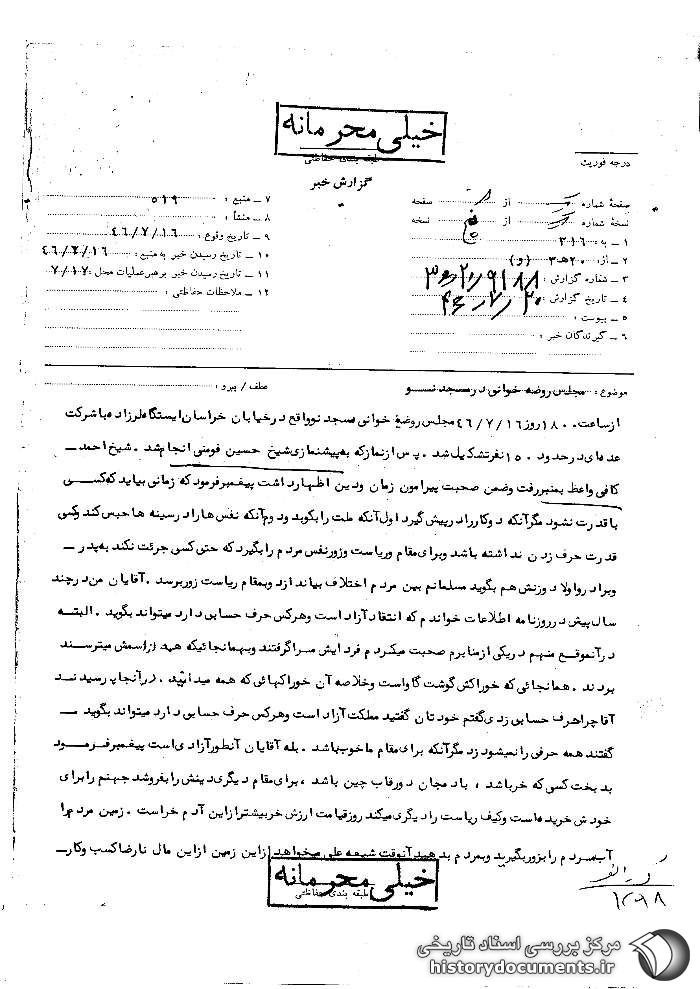 خیلی محرمانه
طبقه بندی حفاظتی
گزارش خبر
درجه فوریت
صفحهٔ شماره از صفحه
نسخهٔ شماره از نسخه
۱ ـ به : ۳۱۶
۲ ـ از : ۲۰هـ۳ (و)
۳ ـ شماره گزارش :
۴ ـ تاریخ گزارش : ۴۶/۷/۲۰
۵ ـ پیوست :
۶ ـ گیرندگان خبر :
۷ ـ منبع : ۵۱۹
۸ ـ منشأ :
۹ ـ تاریخ وقوع : ۴۶/۷/۱۶
۱۰ ـ تاریخ رسیدن خبر به منبع : ۴۶/۷/۱۶
۱۱ ـ تاریخ رسیدن خبر برهبر عملیات محل : ۷/۱۷
۱۲ ـ ملاحظات حفاظتی :
موضوع : مجلس روضه خوانی در مسجد نــو
عطف / پیرو :
از ساعت ۱۸۰۰ روز ۴۶/۷/۱۶ مجلس روضه خوانی مسجد نو واقع در خیابان خراسان ایستگاه لرزاده با شرکت
عده ای در حدود ۱۵۰ نفر تشکیل شد . پس از نماز که به پیشنمازی شیخ حسین فومنی انجام شد . شیخ احمد ـ
کافی واعظ بمنبر رفت و ضمن صحبت پیرامون زمان و دین اظهار داشت پیغمبر فرمود که زمانی بیاید که کسی
با قدرت نشود مگر آنکه دو کار را در پیش گیرد اول آنکه ملت را بکوبد و دوم آنکه نفس ها را در سینه ها حبس کند و کسی
قدرت حرف زدن نداشته باشد و برای مقام و ریاست و زور نفس مردم را بگیرد که حتی کسی جرئت نکند به پدر ـ
و برادر و اولاد و زنش هم بگوید مسلمانم بین مردم اختلاف بیاندازد و بمقام ریاست زور برسد . آقایان من در چند
سال پیش در روزنامه اطلاعات خواندم که انتقاد آزاد است و هرکس حرف حسابی دارد میتواند بگوید . البتـه
در آنموقع منهم در یکی از منابرم صحبت میکردم فردایش مرا گرفتند و بهمانجائیکه همه از اسمش میترسند
بردند . همانجائی که خوراکش گوشت گاو است و خلاصه آن خوراکهائی که همه میدانید . در آنجا پرسیدنـد
آقا چرا حرف حسابی زدی گفتم خودتان گفتید مملکت آزاد است و هرکس حرف حسابی دارد میتواند بگوید ـ
گفتند همه حرفی را نمیشود زد مگر آنکه برای مقام ما خوب باشد . بله آقایان آنطور آزادی است پیغمبر فرمـود
بدبخت کسی که خر باشد ، بادمجان دور قاب چین باشد ، برای مقام دیگری دینش را بفروشد جهنم را برای
خودش خریده است و کیف ریاست را دیگری میکند روز قیامت ارزش خر بیشتر از این آدم خر است . زمین مردم را
آب مردم را بزور بگیرید و بمردم بدهید آنوقت شیعه علی میخواهد از این زمین از این مال نارضا کسب و کار ـ
خیلی محرمانه
طبقه بندی حفاظتی
مرکز بررسی اسناد تاریخی
historydocuments.ir